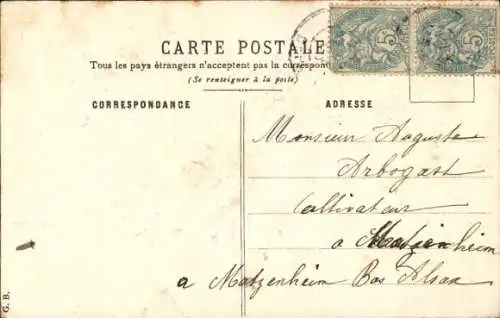 CARTE POSTALE
Tous les pays étrangers n'acceptent pas la correspon
(Se renseigner à la poste)
CORRESPONDANCE
ADRESSE
5
5
Monsieur Auguste
Arbogast
Cultivateur
a Matzenheim
a Matzenheim Bas Alsace
G. B.